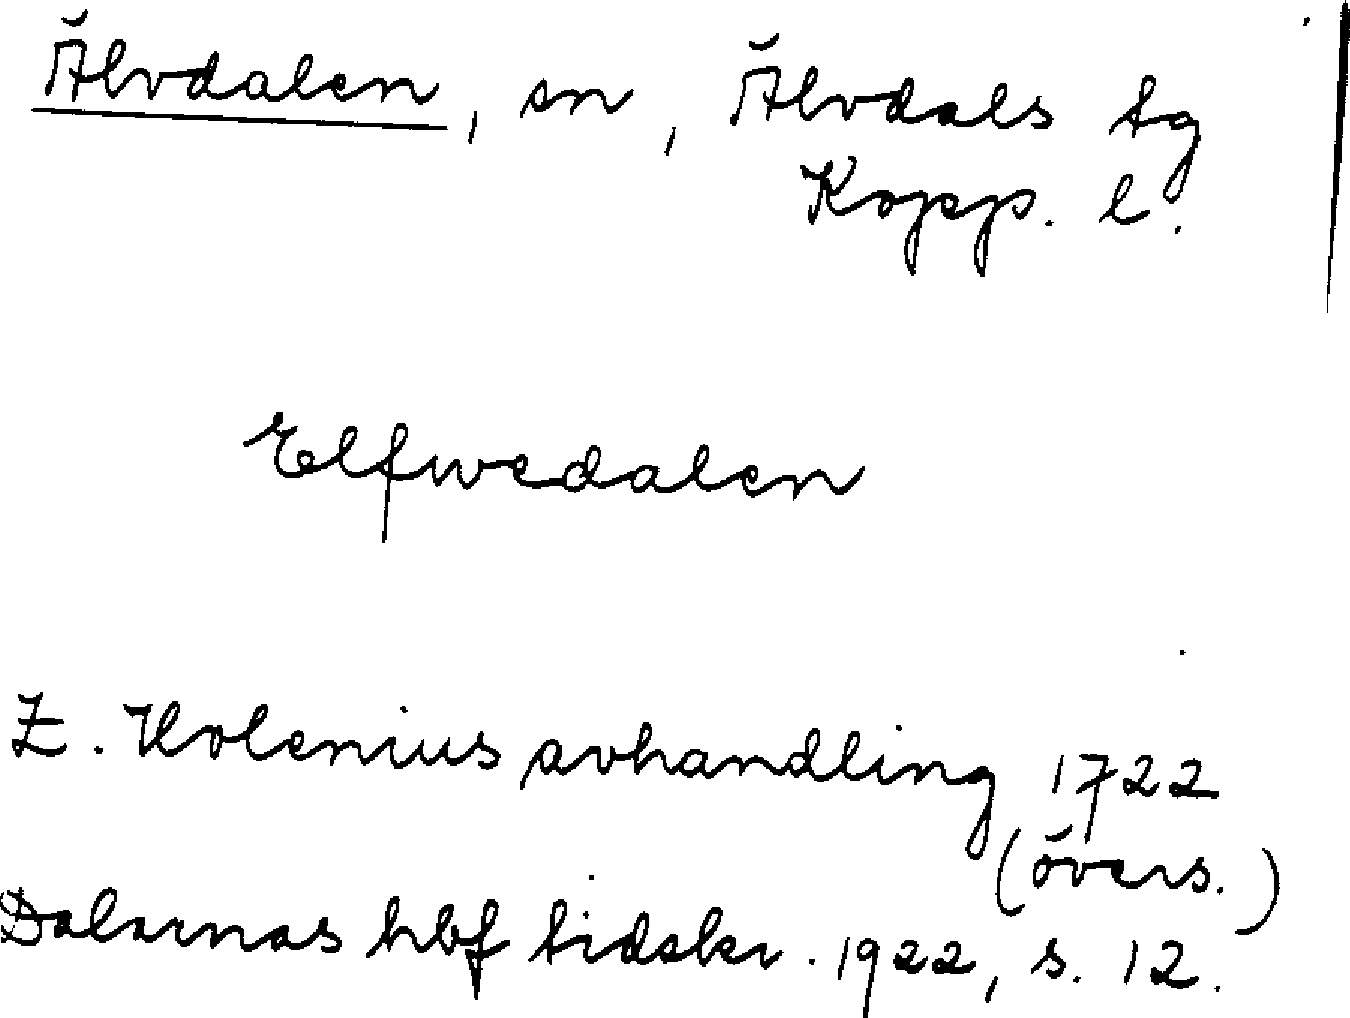 Älvdalen, sn, Älvdals tg
Kopp. l.
Elfwedalen
Z. Holenius avhandling 1722
(övers.)
Dalarnas hbf tidskr. 1922, s. 12.